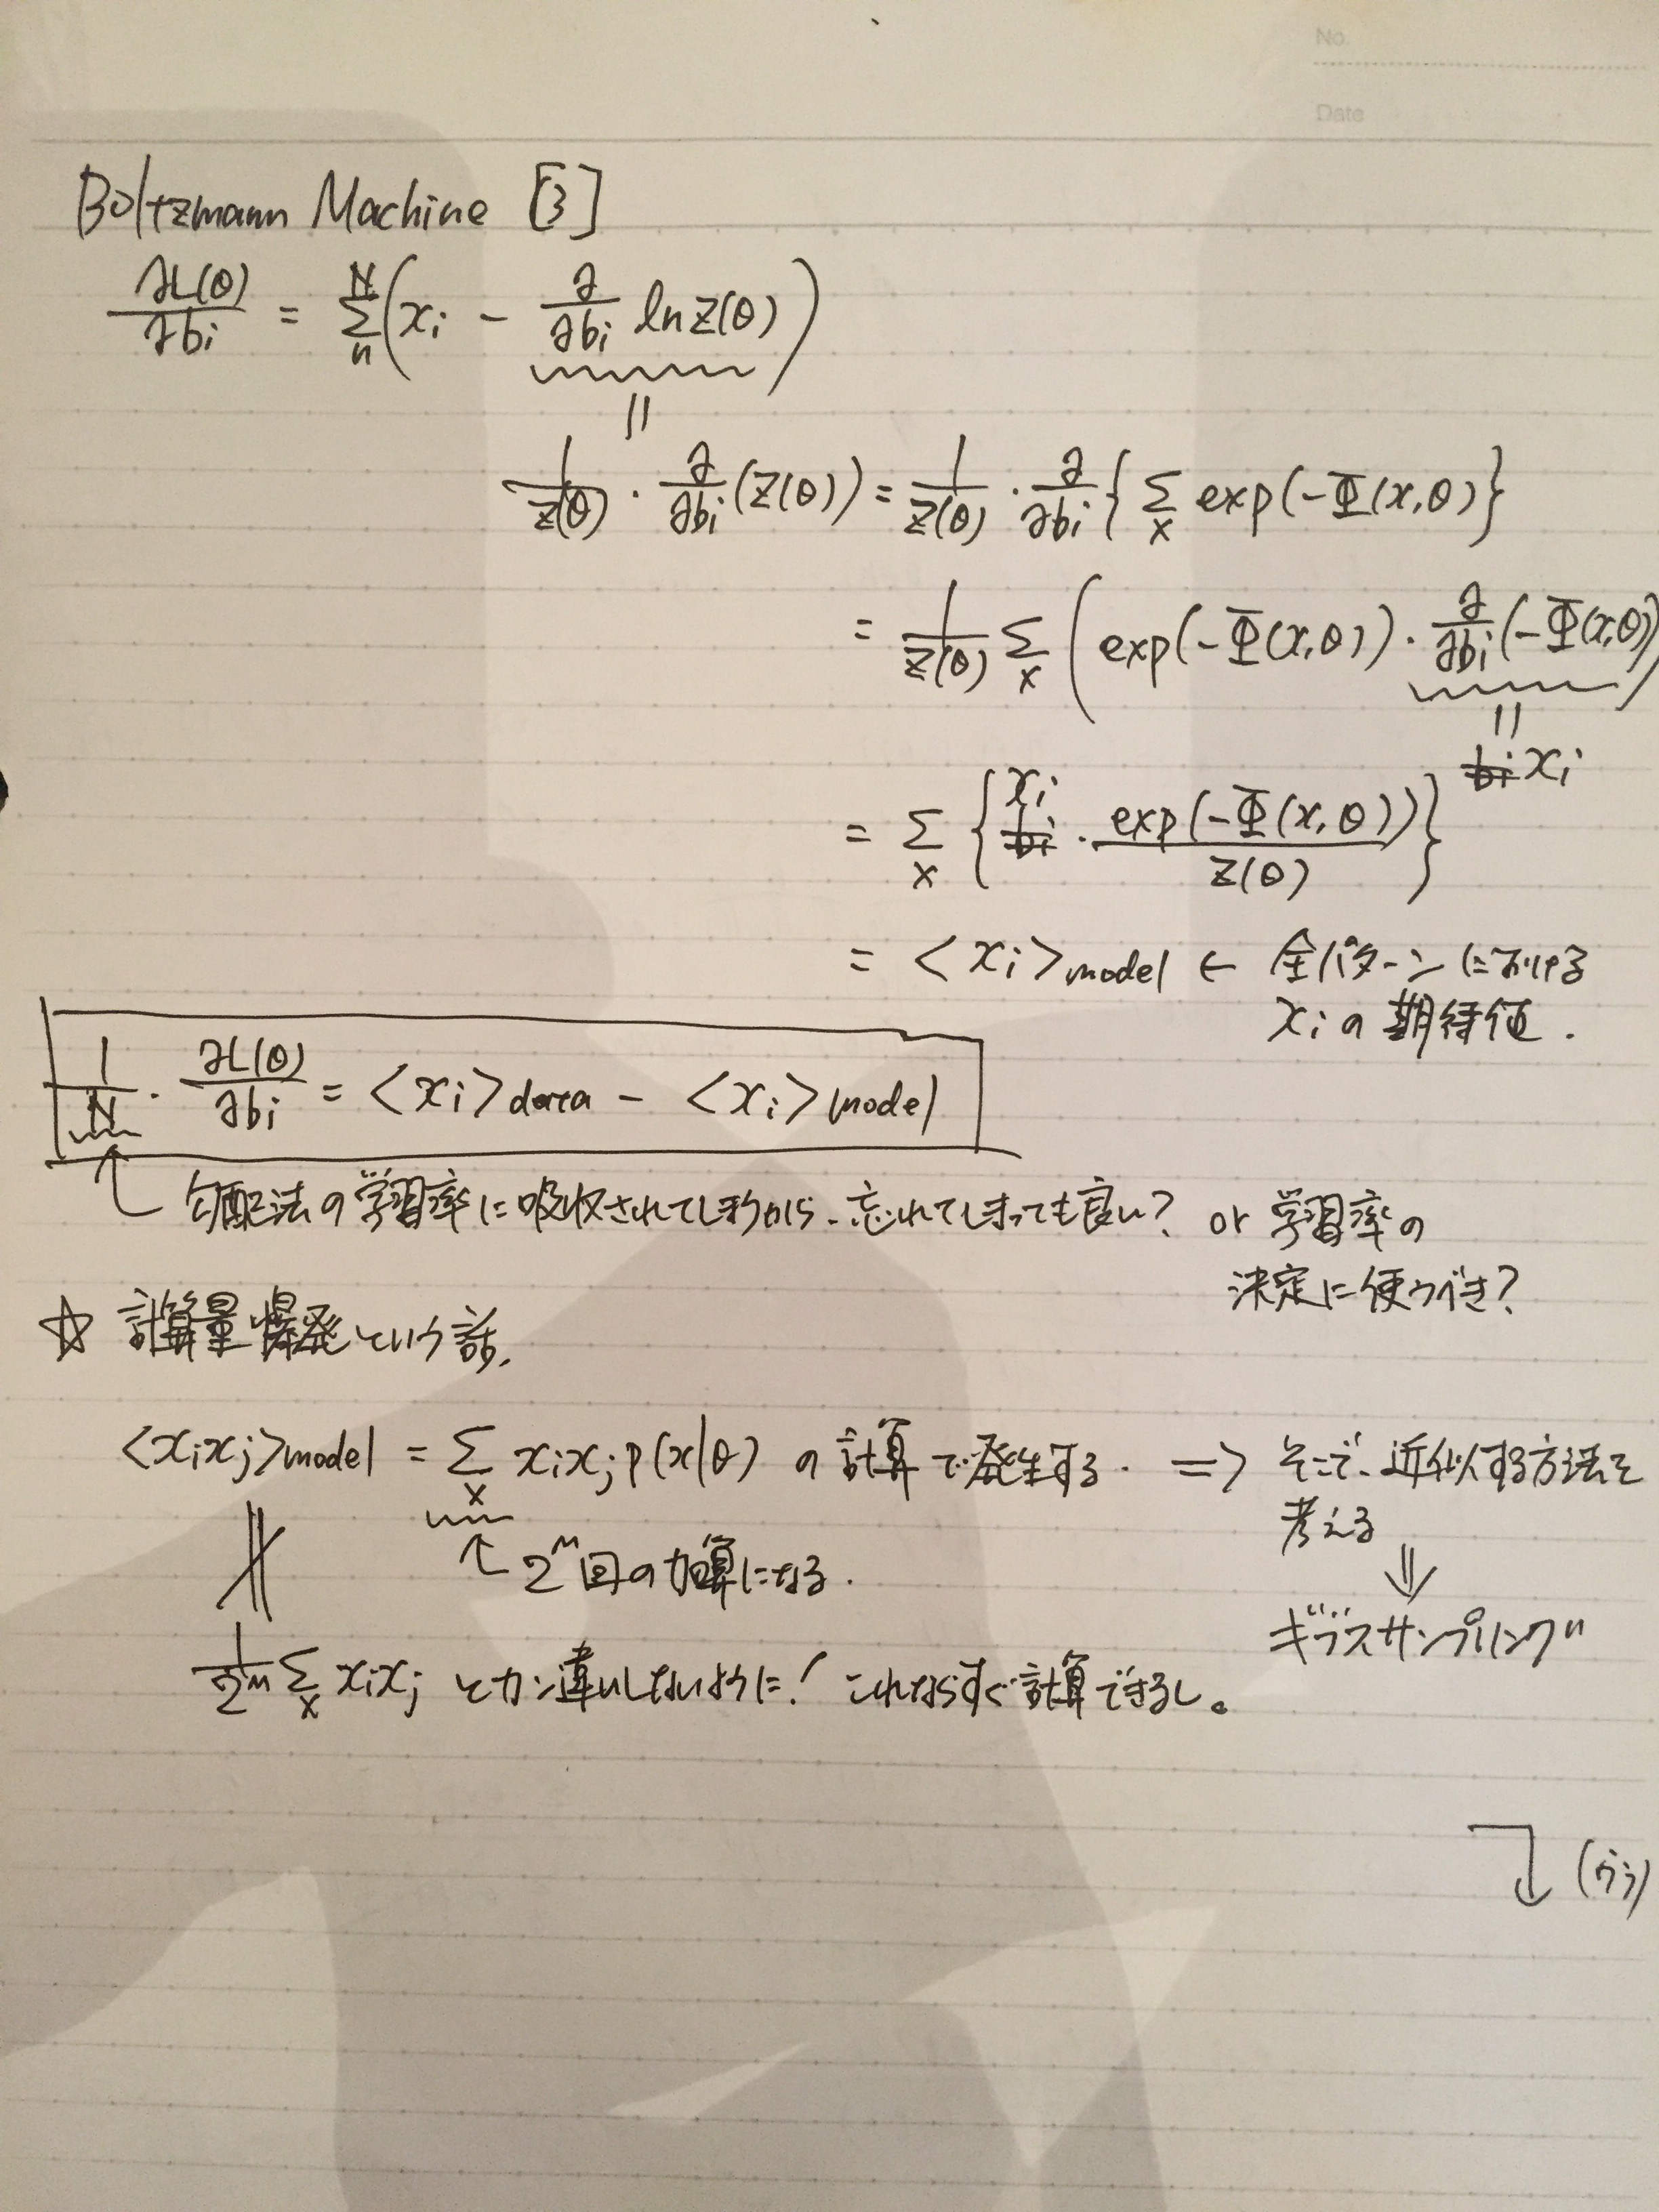 No.
Date
Boltzmann Machine [3]
∂L(θ)/∂bi = Σ_n^N (xi − ∂/∂bi ln Z(θ))
||
1/Z(θ) · ∂/∂bi (Z(θ)) = 1/Z(θ) · ∂/∂bi { Σ_x exp(−Φ(x,θ) }
= 1/Z(θ) Σ_x ( exp(−Φ(x,θ)) · ∂/∂bi (−Φ(x,θ)) )
||
bi xi
= Σ_x { xi bi · exp(−Φ(x,θ)) / Z(θ) }
= <xi>model ← 全パターンにおける
xiの期待値.
1/N · ∂L(θ)/∂bi = <xi>data − <xi>model
勾配法の学習率に吸収されてしまうから、忘れてしまっても良い? or 学習率の
決定に使うべき?
☆ 計算量爆発という話.
<xixj>model = Σ_x xixj p(x|θ) の計算で発生する. => そこで、近似する方法を
考える
↑ 2^M回の加算になる. ⇓
ギブスサンプリング
1/2^M Σ_x xixj とカン違いしないように! これならすぐ計算できるし。
(ウラ)